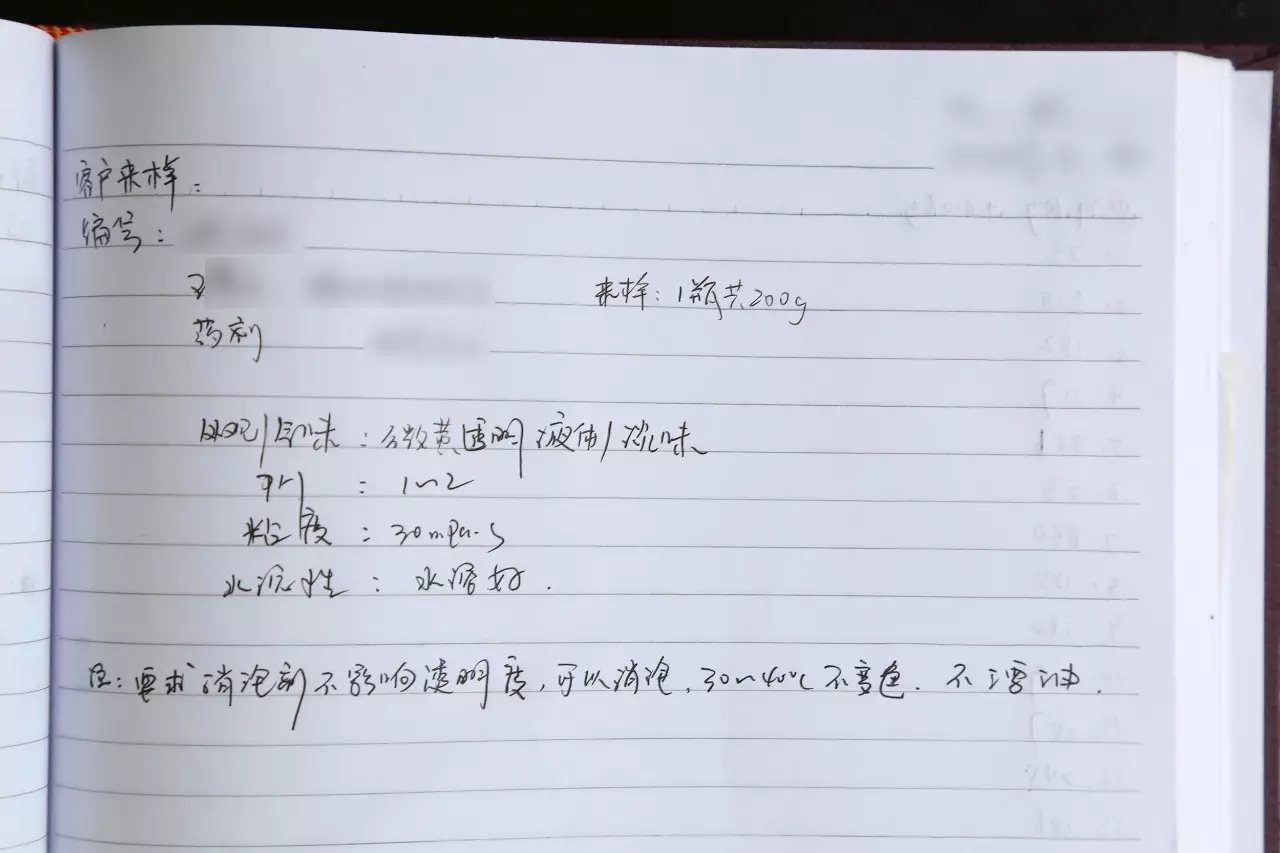 客户来样：
编号：
来样：1瓶共200g
药剂
外观/气味：微黄透明液体/淡味
PH：1~2
粘度：30mPa·s
水溶性：水溶好.
注：要求消泡剂不影响透明度，可以消泡，30~40℃不变色.不漂油.